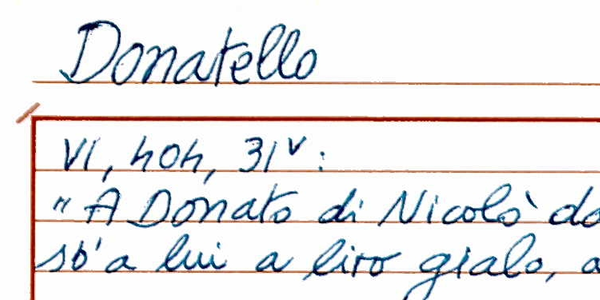 Donatello
VI, 404, 31ᵛ:
"A Donato di Nicolò
a lui a liro gialo, a